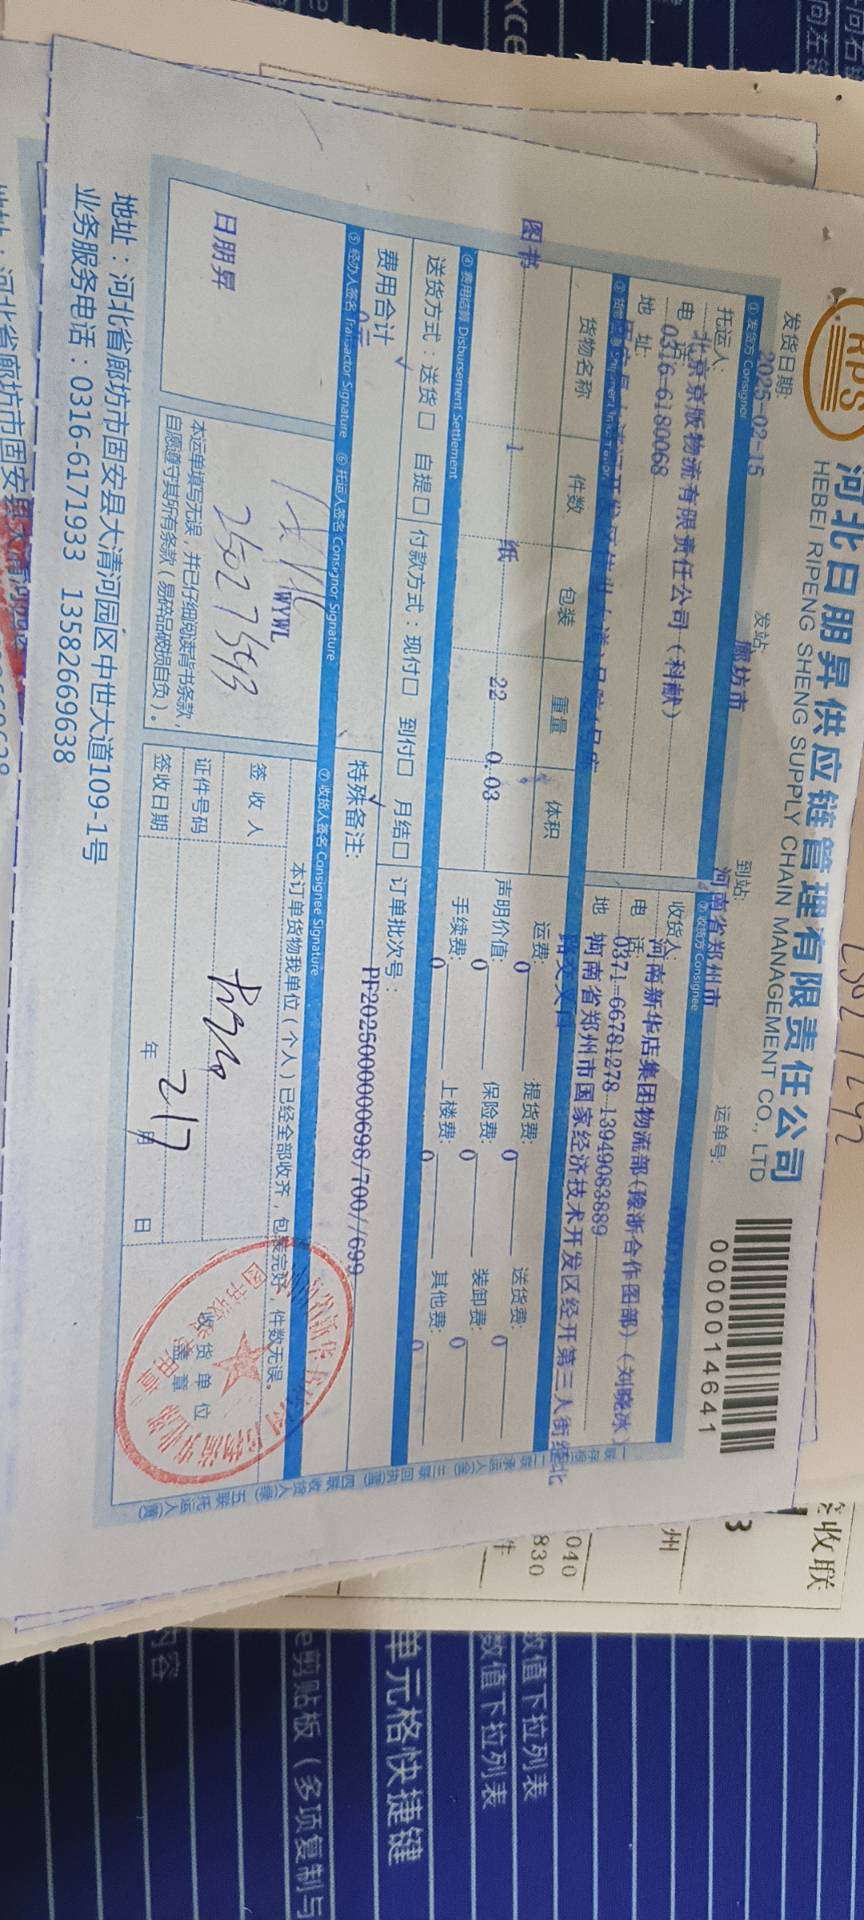 RPS
河北日朋昇供应链管理有限责任公司
HEBEI RIPENG SHENG SUPPLY CHAIN MANAGEMENT CO., LTD
发货日期:
2025-02-15
发站
廊坊市
到站:
河南省郑州市
运单号:
0000014641
① 发货方 Consignor
② 收货方 Consignee
托运人:
北京京版物流有限责任公司(科献)
电 话
0316-6180068
地 址
收货人:
河南新华店集团物流部(豫浙合作图部)(刘晓冰)
电 话:
0371-66781278 13949083889
地
河南省郑州市国家经济技术开发区经开第三大街经北
路交叉口
货物名称
件数
包装
重量
体积
图书
1
纸
22
0.03
运费:
0
提货费:
0
送货费:
0
声明价值:
0
保险费:
0
装卸费:
0
手续费:
0
上楼费:
0
其他费:
0
④ 费用结算 Disbursement Settlement
送货方式:送货□ 自提□
付款方式:现付□ 到付□ 月结□
订单批次号:
PF2025000000698/700//699
费用合计
0元
特殊备注:
⑤ 经办人签名 Transactor Signature
⑥ 托运人签名 Consignor Signature
⑦ 收货人签名 Consignee Signature
日朋昇
WYWL
25027593
本运单填写无误,并已仔细阅读背书条款,
自愿遵守其所有条款(易碎品破损自负)。
本订单货物我单位(个人)已经全部收齐,包装完好,件数无误。
签 收 人
证件号码
签收日期
年 月 日
2/7
收货单位
盖章
地址:河北省廊坊市固安县大清河园区中世大道109-1号
业务服务电话:0316-6171933 13582669638
签收联
州
3
040
830
件
数值下拉列表
数值下拉列表
单元格快捷键
e剪贴板(多项复制与
内容